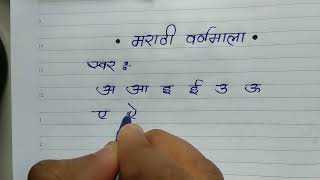 • मराठी वर्णमाला •
स्वर :
अ आ इ ई उ ऊ
ए ऐ